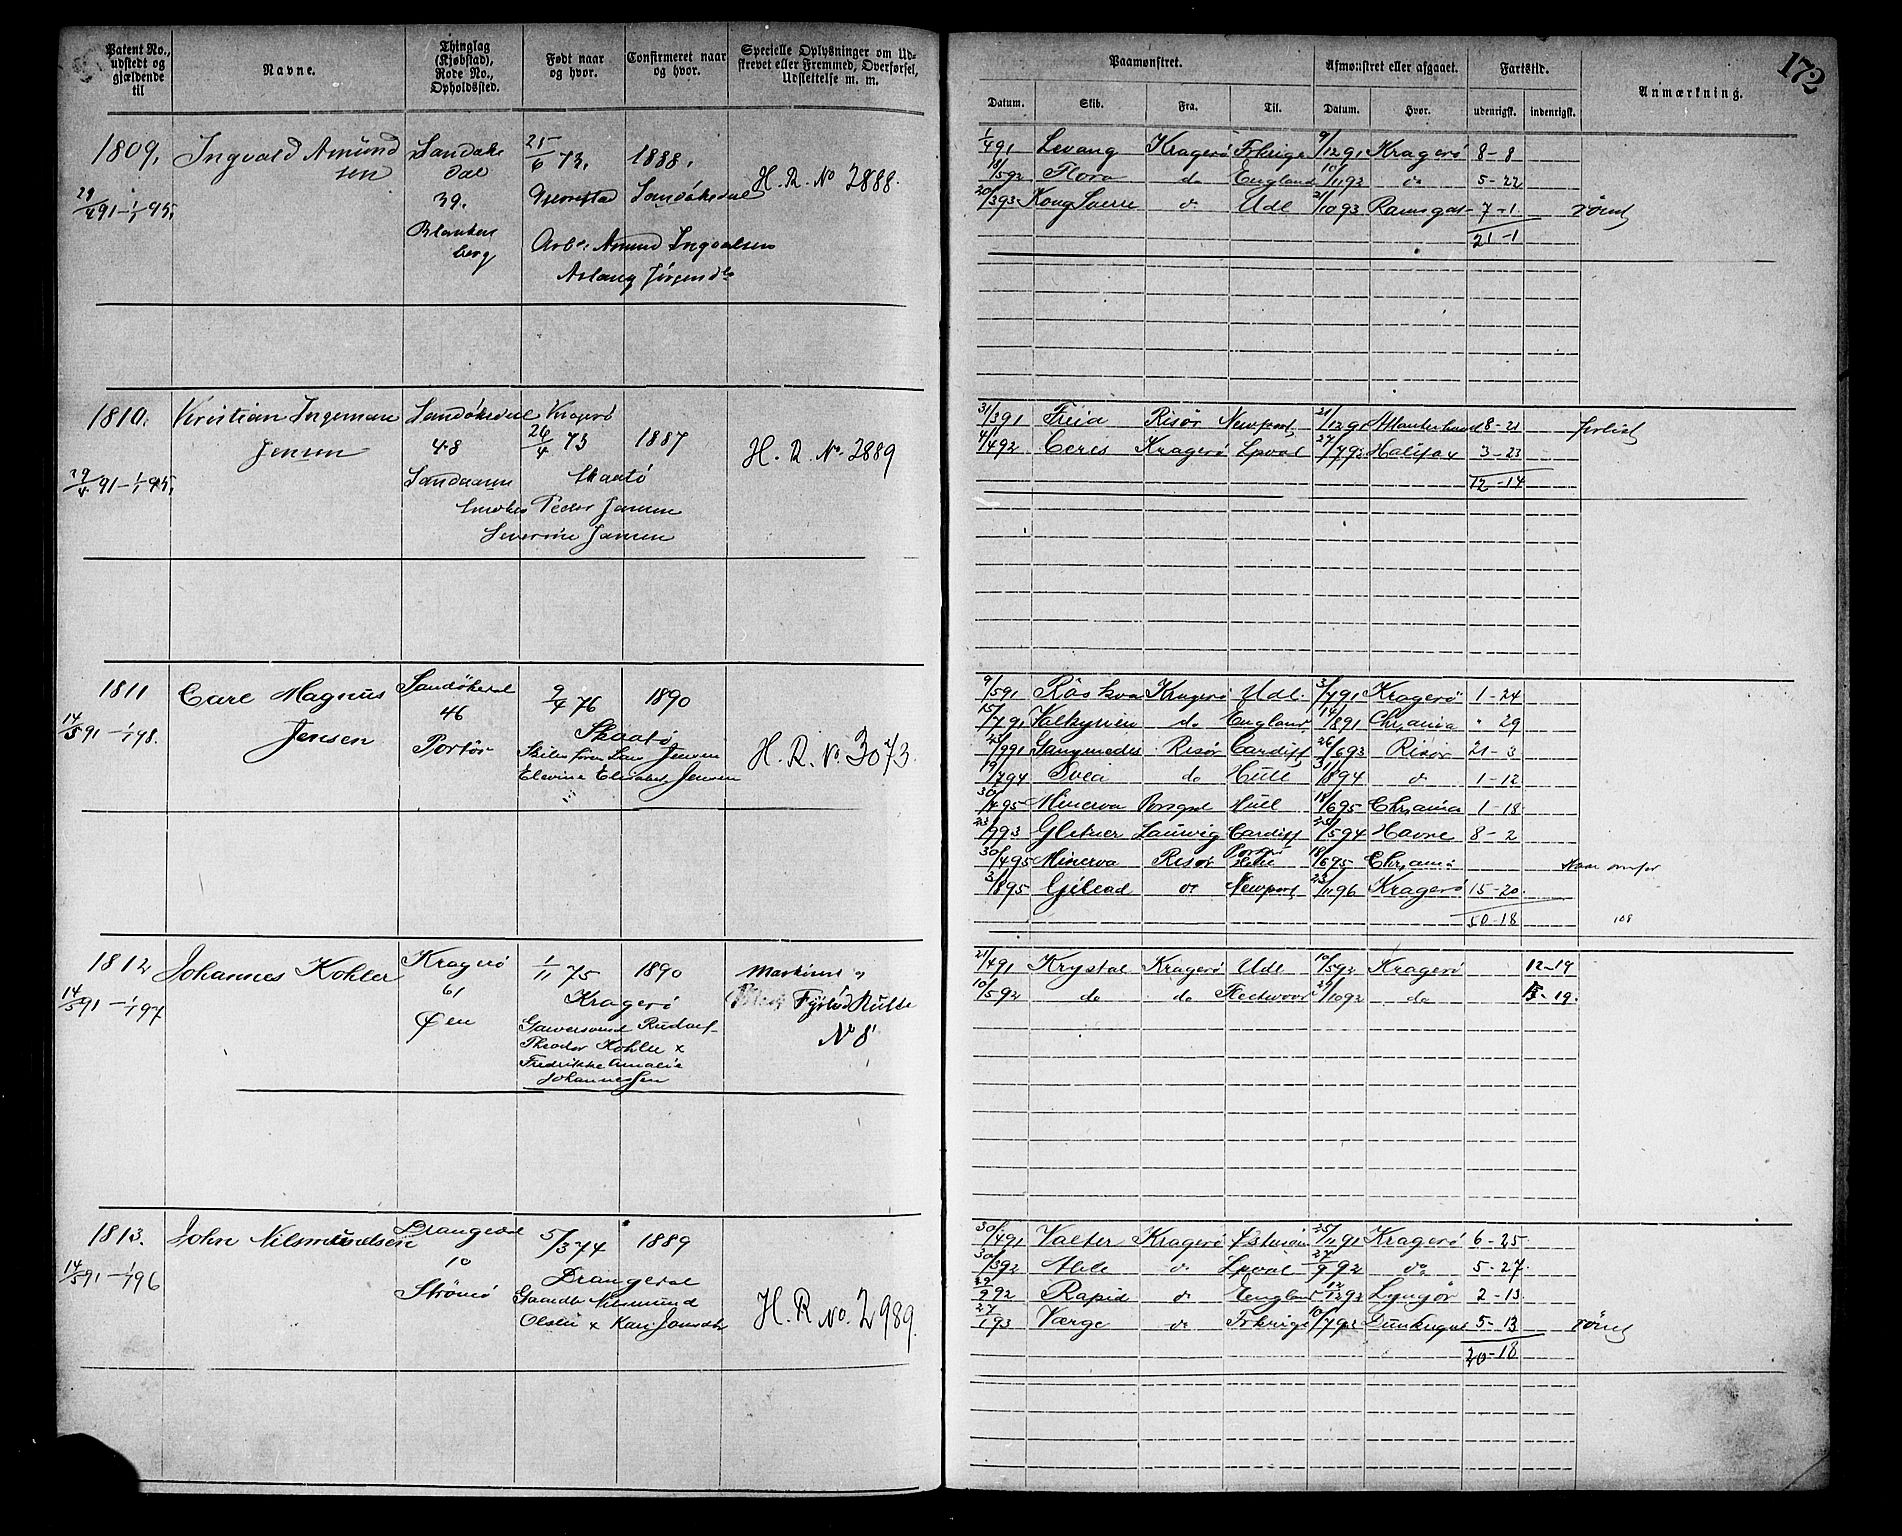 Patent No., udstedt og gjældende til
Navne.
Thinglag (Kjøbstad), Rode No., Opholdssted.
Født naar og hvor.
Confirmeret naar og hvor.
Specielle Oplysninger om Udskrevet eller Fremmed, Overførsel, Udslettelse m. m.
1809, Ingvald Amund
sen
29/4 91 – 1/1 95,
Sandøke
dal
39.
Blanken
berg
25/6 73, 1888,
Gjerrestad Sandøkedal
Arb. Amund Ingvalsen
Aslaug Jørgensd.
H. R. No 2888.
1810. Kristian Ingeman
Jensen
29/4 91 – 1/1 95,
Sandøkedal
48
Kragerø
26/4 73 1887
Skaatø
Peder Jensen
Severine Jansen
H. R. No. 2889
1811 Carl Magnus
Jensen
14/5 91 – 1/1 98.
Sandøkedal
46
Portør
9/4 76 1890
Skaatø
Lars Jensen
Elevine Elisabet Jensen
H. R. No. 3073.
1812 Johannes Kohler
14/5 91 – 1/1 97
Kragerø
61
Øen
1/11 75 1890
Kragerø
Garversvend Rudolf
Theodor Kohler x
Fredrikke Amalie
Johannessen
Maskinist
Fyrbød Rulle
No 8
1813. John Nilsmundsen
14/5 91 – 1/1 96
Drangedal
10
Strømø
5/3 74 1889
Drangedal
Gaardbr Nilsmund
Olsen x Kari Jonsdtr
H. R. No. 2989.
172
Paamønstret.
Afmønstret eller afgaaet.
Fartstid.
Anmærkning.
Datum. Skib. Fra. Til. Datum. Hvor. udenrigsk. indenrigsk.
1/4 91 Levang Kragerø Frkrige 9/12 91 Kragerø 8-8
18/5 92 Flora do England 10/11 92 do 5-22
20/3 93 Kong Sverre do Udl 21/10 93 Ramsgat 7-1 rømt
21-1
31/3 91 Freia Risør Newport 21/12 91 Atlanterhavet 8-21 forlist
4/4 92 Ceres Kragerø Lpool 27/7 92 Halifax 3-23
12-14
9/5 91 Röskva Kragerø Udl. 3/7 91 Kragerø 1-24
15/7 91 Valkyrien do England 14/8 91 Chrania " 29
23/9 91 Ganymedes Risør Cardiff 26/6 93 Risør 21-3
9/7 94 Svea do Hull 31/8 94 do 1-12
30/4 95 Minerva Porsgd Hull 18/6 95 Chrania 1-18
23/9 93 Glitner Laurvig Cardiff 25/5 94 Havre 8-2
30/4 95 Minerva Risør 18/6 95 Chrania
3/8 95 Gilead do Newport 23/11 96 Kragerø 15-20
50-18
108
21/4 91 Krystal Kragerø Udl 10/5 92 Kragerø 12-19
10/5 92 do do Fleetwood 29/10 92 do 5-19.
30/4 91 Valter Kragerø Østersøen 25/11 91 Kragerø 6-25
30/3 92 Abel do Lpool 27/9 92 do 5-27
29/9 92 Rapid do England 12/12 92 Lyngør 2-13
27/1 93 Værge do Frkrige 10/7 93 Dunkerque 5-13 rømt
20-18